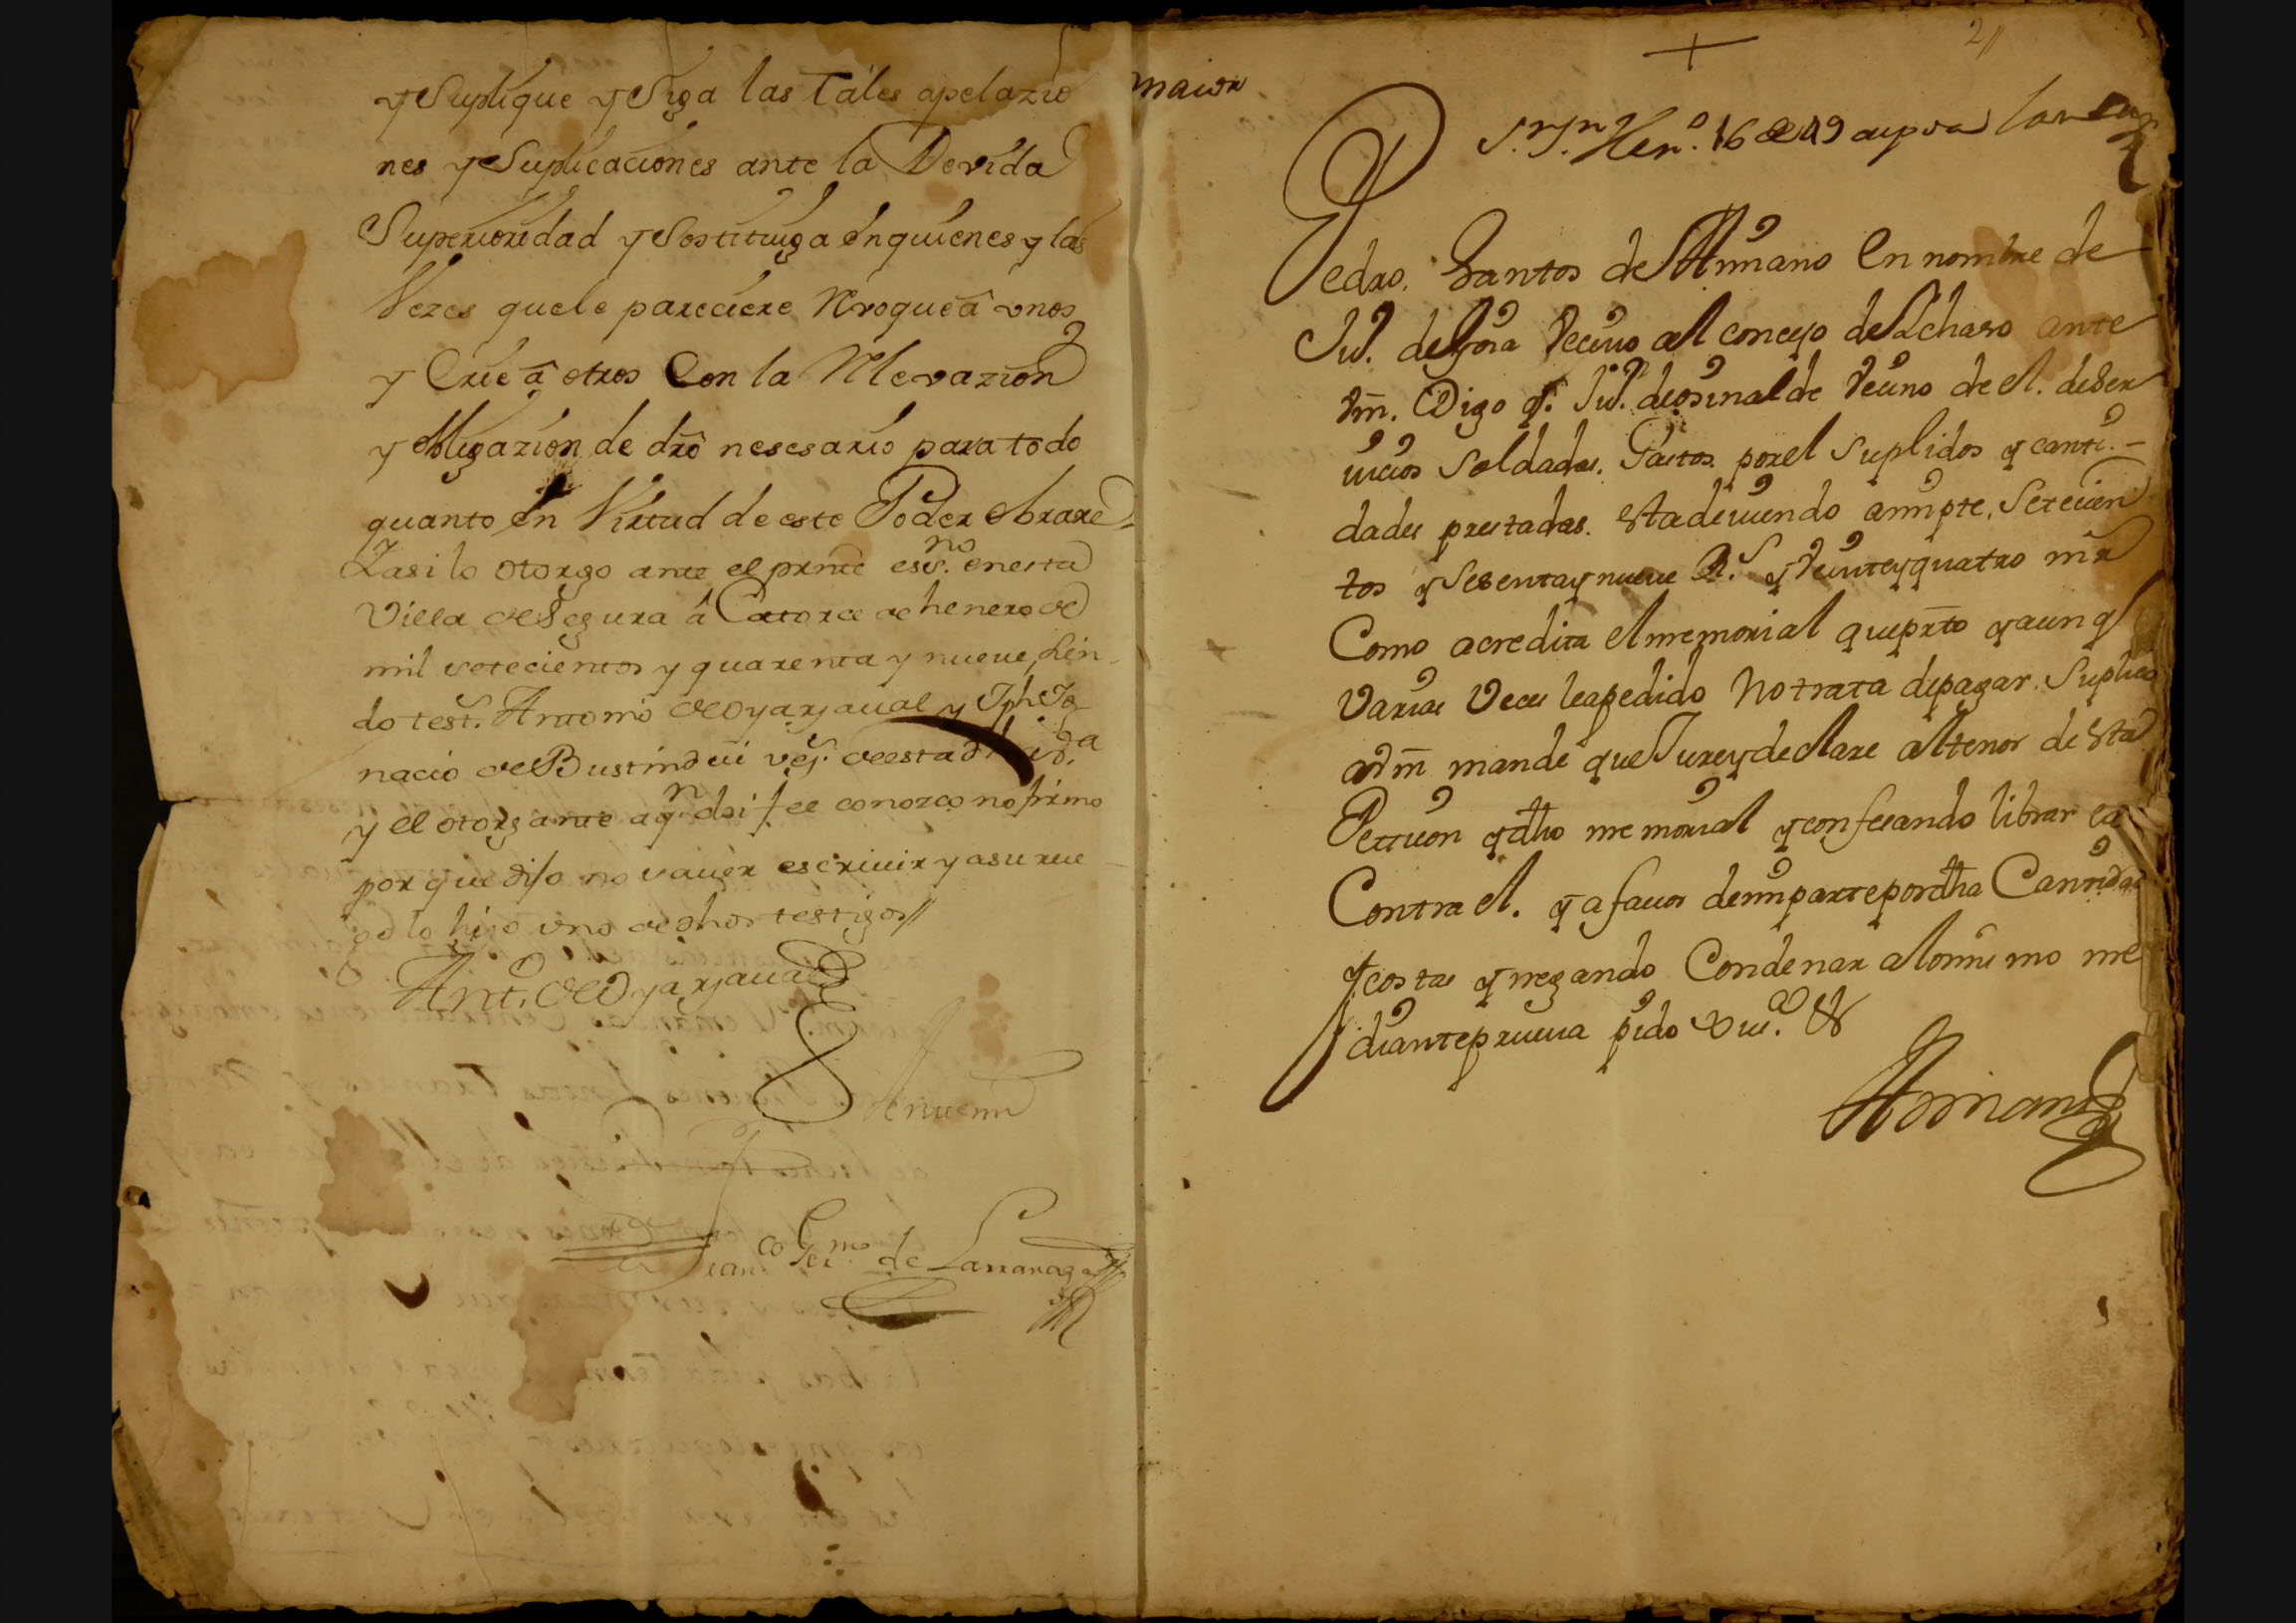 y Suplique y Siga las tales apelazio
nes y Suplicaciones ante la Devida
Superioridad y Sostituiga en quienes y las
Vezes que le pareciere Rvoque â vnos
y Crie â otros Con la Rlevazion
y obligazion de dro nesesario para todo
quanto en Virtud de este Poder obrare
Yasi lo otorgo ante el prnte essno. en esta
Villa de Segura â Catorce de henero de
mil setecientos y quarenta y nueve sien
do tests. Antonio de Oyarzaval y Jph Ig
nacio de Bustindui vezs. de esta dha
y el otorgante a qn doi fee conozco no firmo
por que dijo no saver escriuir y asu rue
go lo hizo vno de dhos testigos//
Anto. de Oyarzaual
Franco Germo de Larranaga
maior
2//
+
Henº. 16 de 49
Pedro Santos de Arimano En nombre de
Ju. de Vecino del concejo de Lchaso ante
Vm. Digo q. Ju. de Vecino de el. de Ser
uicios Soldadas. Gastos por el Suplidos y canti-
dades prestadas. Esta deuiendo a mi pte. Setecien
tos y Sesenta y nueue Rs. y Veinte y quatro mrs
Como acredita el memorial que prto y aun q
Varias Veces le a pedido No trata de pagar. Suplico
a Vm mande que Jure y declare al tenor de Esta
Peticion y dho memorial y confesando librar
Contra el. y a fauor de mi parte por dha Cantidad
y costas y negando Condenar a lo mismo me
diante prueua pido &